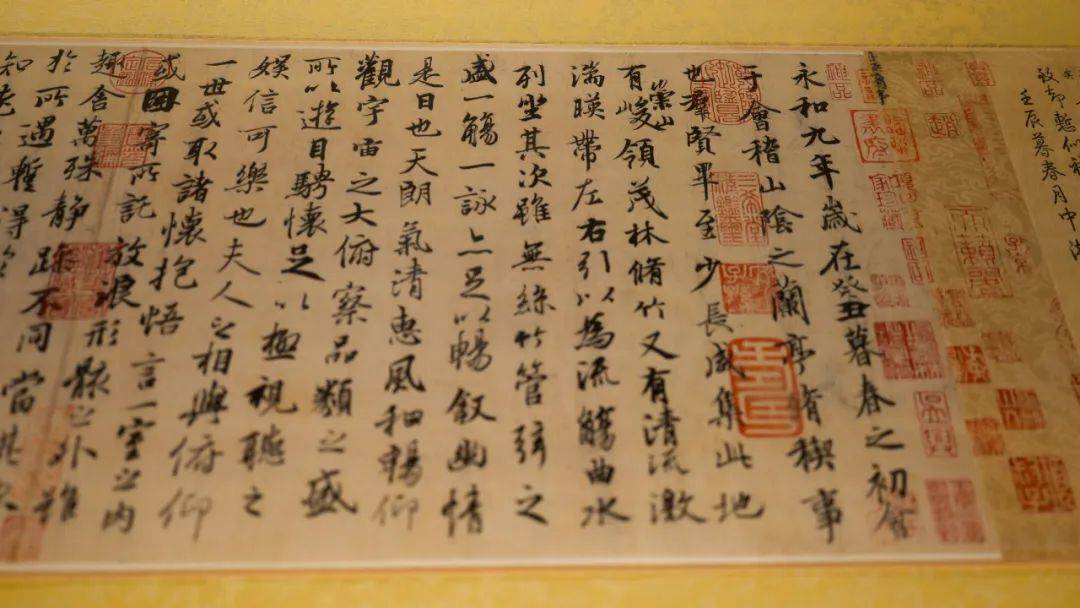 壬辰暮春月中
天籟閣
永和九年歲在癸丑暮春之初會
于會稽山陰之蘭亭脩稧事
也羣賢畢至少長咸集此地
崇山
有峻領茂林脩竹又有清流激
湍暎帶左右引以為流觴曲水
列坐其次雖無絲竹管弦之
盛一觴一詠亦足以暢敘幽情
是日也天朗氣清惠風和暢仰
觀宇宙之大俯察品類之盛
所以遊目騁懷足以極視聽之
娛信可樂也夫人之相與俯仰
一世或取諸懷抱悟言一室之內
或因寄所託放浪形骸之外雖
趣舍萬殊靜躁不同當其
於所遇蹔得於
知老